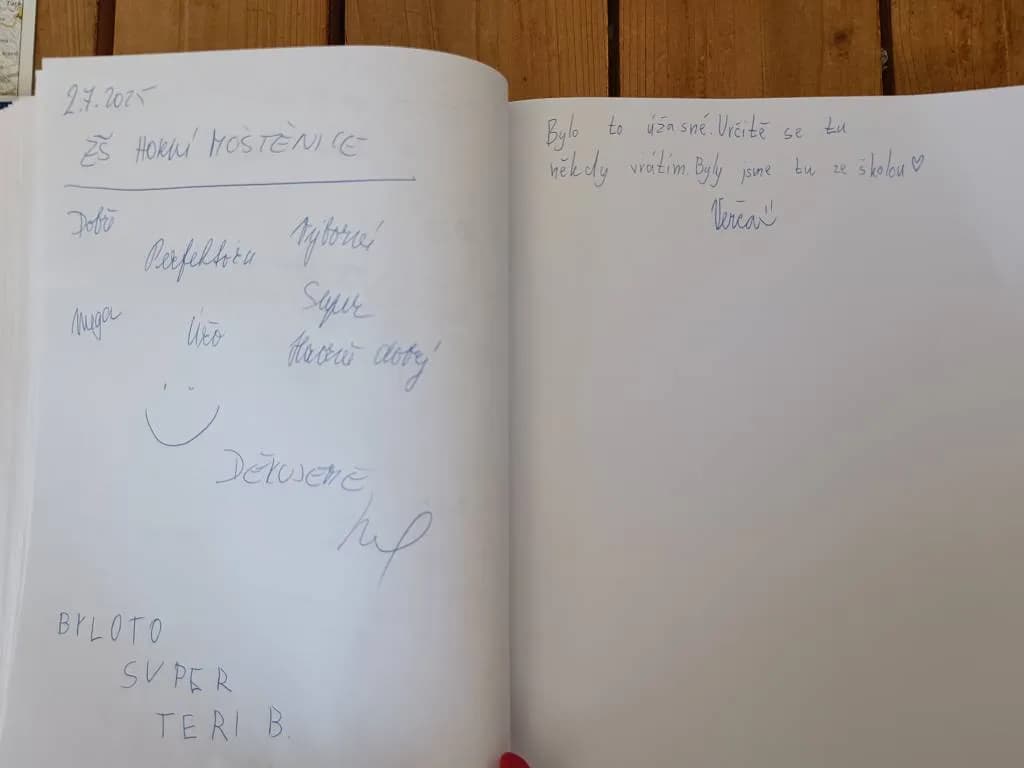 2.7.2025
ZŠ HORNÍ MOŠTĚNICE
Dobř
Perfektní
Výborné
Super
Mega
Úžo
dobrý
DĚKUJEME
BYLOTO
SUPER
TERI B.
Bylo to úžasné. Určitě se tu
někdy vrátím. Byly jsme tu ze školou ♡
Verča